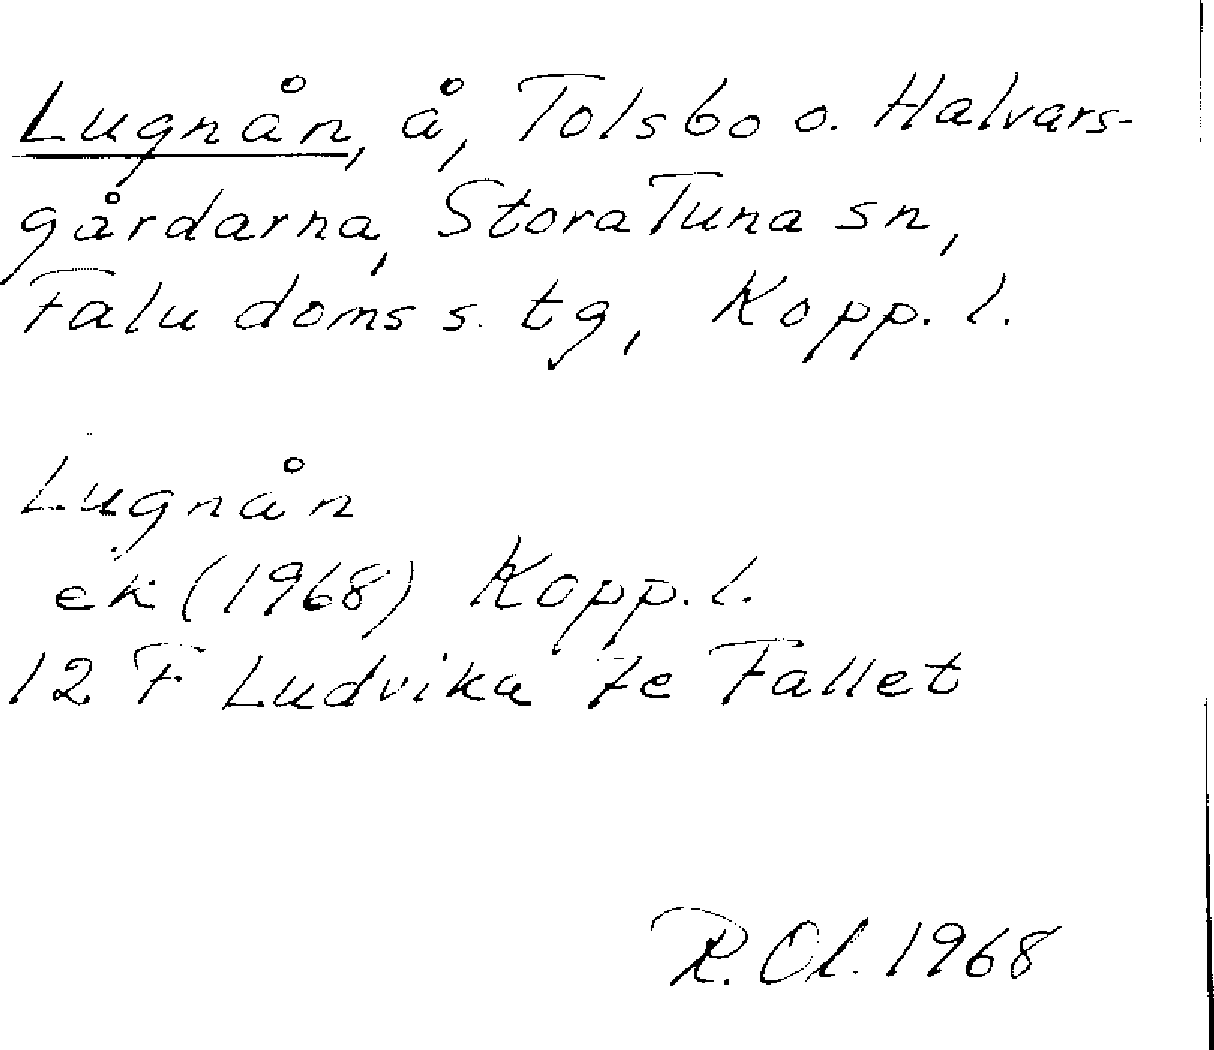 Lugnån, å, Tolsbo o. Halvars-
gårdarna, Stora Tuna sn,
Falu doms s. tg, Kopp. l.
Lugnån
ek (1968) Kopp. l.
12 F Ludvika 7e Fallet
R. Ol. 1968